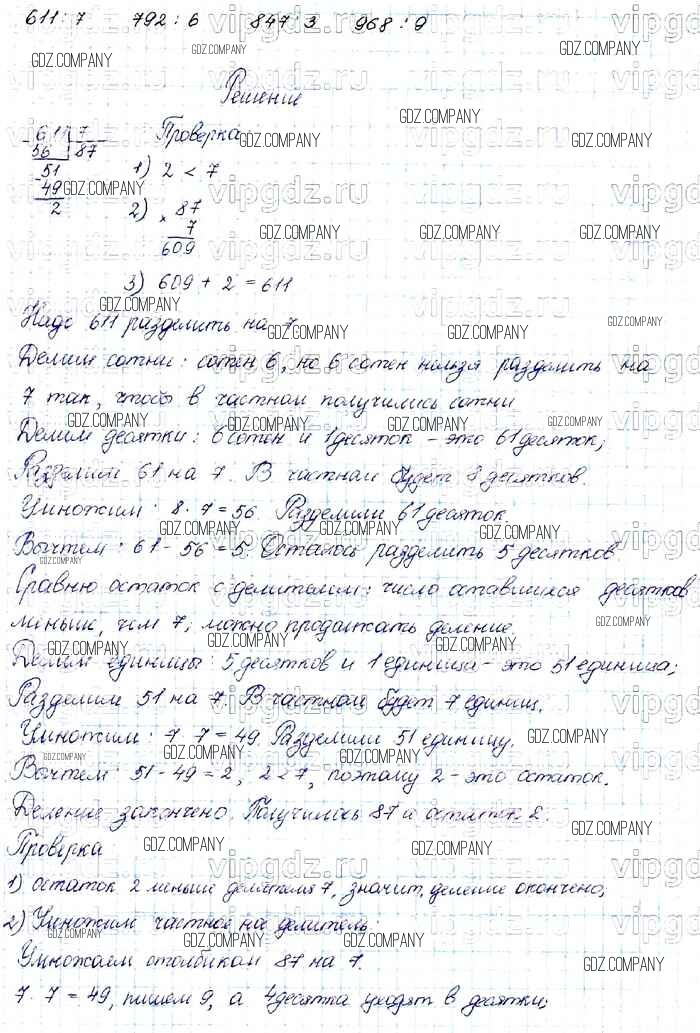 611 : 7 792 : 6 847 : 3 968 : 9
Решение
611 7 Проверка
56 87
51 1) 2 < 7
49
2 2) × 87
7
609
3) 609 + 2 = 611
Надо 611 разделить на 7
Делим сотни: сотен 6, но 6 сотен нельзя разделить на
7 так, чтобы в частном получились сотни
Делим десятки: 6 сотен и 1 десяток – это 61 десяток;
Разделим 61 на 7. В частном будет 8 десятков.
Умножим: 8 · 7 = 56 Разделили 61 десяток.
Вычтем: 61 - 56 = 5. Осталось разделить 5 десятков
Сравню остаток с делителем: число оставшихся десятков
меньше, чем 7, можно продолжать деление.
Делим единицы: 5 десятков и 1 единица – это 51 единица;
Разделим 51 на 7. В частном будет 7 единиц.
Умножим: 7 · 7 = 49. Разделили 51 единицу.
Вычтем: 51 - 49 = 2, 2 < 7, поэтому 2 – это остаток.
Деление закончено. Получилось 87 и остаток 2.
Проверка
1) остаток 2 меньше делителя 7, значит, деление окончено;
2) Умножим частное на делитель.
Умножаем столбиком 87 на 7.
7 · 7 = 49, пишем 9, а 4 десятка уходят в десятки;